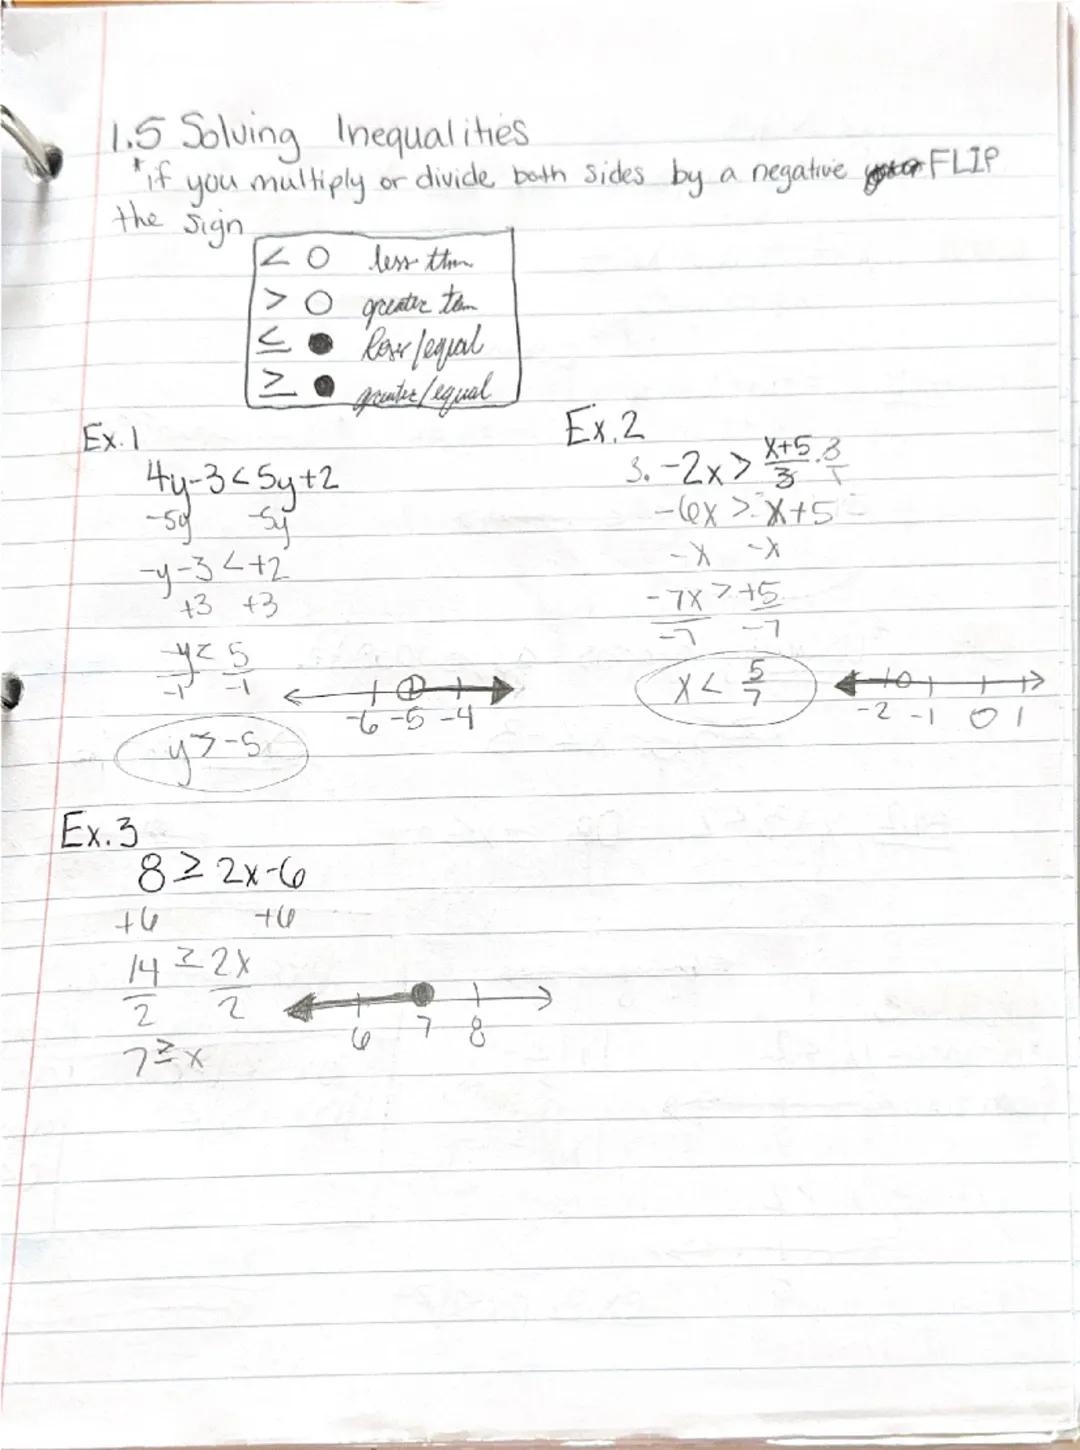 1.5 Solving Inequalities
*if you multiply or divide both sides by a negative FLIP
the sign
< ○ less than
> ○ greater tan
≤ ● less/equal
≥ ● greater/equal
Ex.1
4y-3<5y+2
-5y -5y
-y-3<+2
+3 +3
-y< 5
-1 -1
y>-5
-6 -5 -4
Ex.2
3. -2x> x+5/3 · 3/1
-6x > x+5
-x -x
-7x > +5
-7 -7
x< 5/7
-2 -1 0 1
Ex.3
8 ≥ 2x-6
+6 +6
14 ≥ 2x
2 2
7≥x
6 7 8